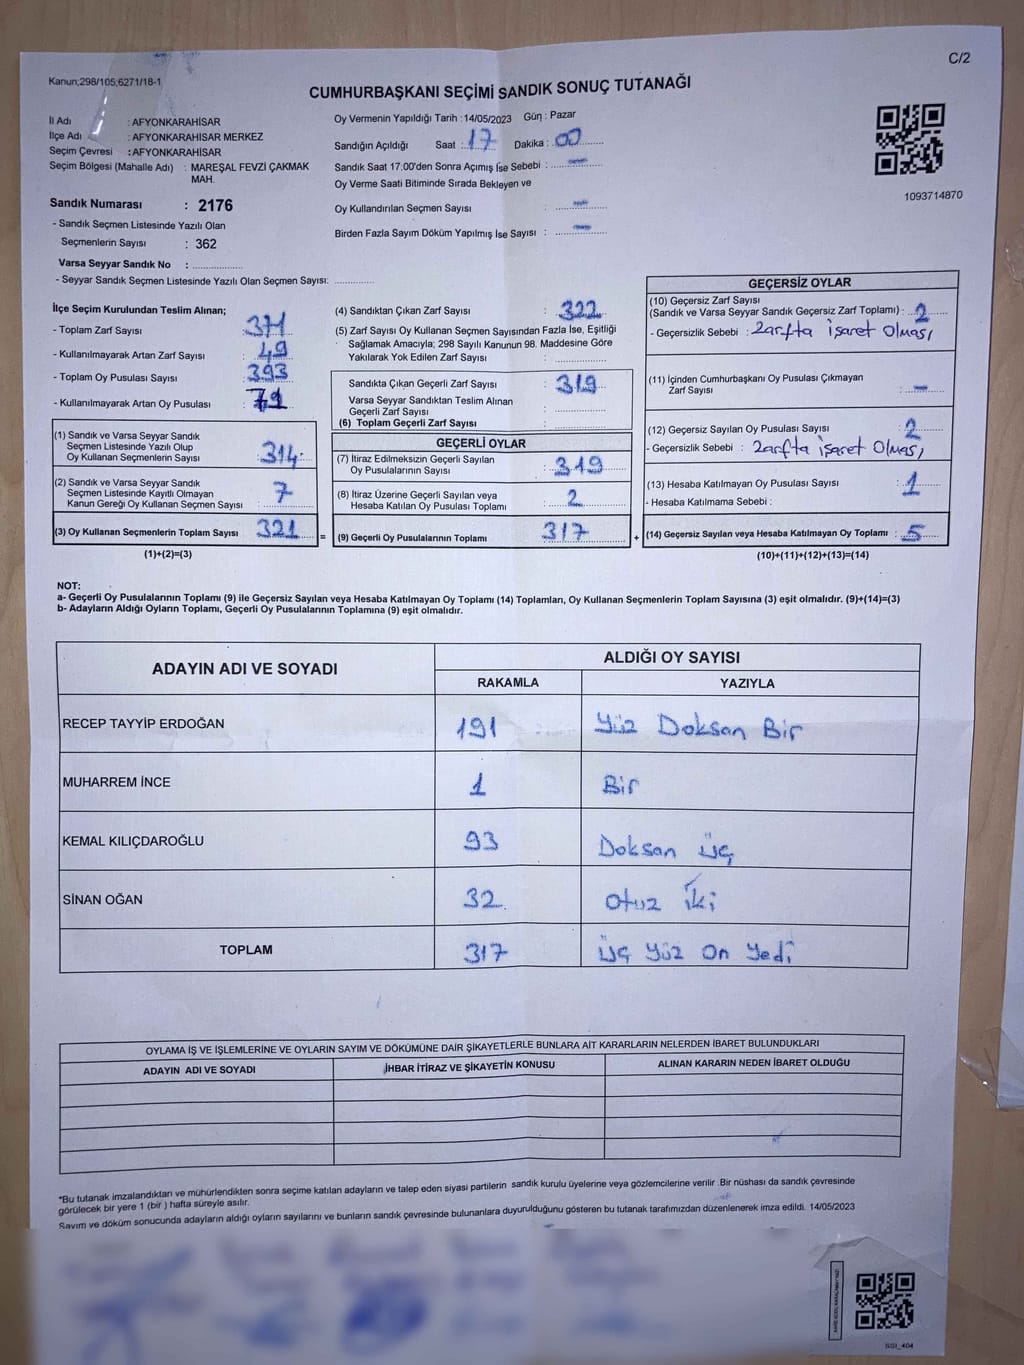 C/2
Kanun;298/105;6271/18-1
CUMHURBAŞKANI SEÇİMİ SANDIK SONUÇ TUTANAĞI
İl Adı : AFYONKARAHİSAR
İlçe Adı : AFYONKARAHİSAR MERKEZ
Seçim Çevresi : AFYONKARAHİSAR
Seçim Bölgesi (Mahalle Adı) : MAREŞAL FEVZİ ÇAKMAK
MAH.
Sandık Numarası : 2176
- Sandık Seçmen Listesinde Yazılı Olan
Seçmenlerin Sayısı : 362
Varsa Seyyar Sandık No : ..................
- Seyyar Sandık Seçmen Listesinde Yazılı Olan Seçmen Sayısı: ..............
Oy Vermenin Yapıldığı Tarih : 14/05/2023 Gün : Pazar
Sandığın Açıldığı Saat : 17 Dakika : 00
Sandık Saat 17:00'den Sonra Açımış İse Sebebi : -
Oy Verme Saati Bitiminde Sırada Bekleyen ve
Oy Kullandırılan Seçmen Sayısı : -
Birden Fazla Sayım Döküm Yapılmış İse Sayısı : -
1093714870
İlçe Seçim Kurulundan Teslim Alınan;
- Toplam Zarf Sayısı : 371
- Kullanılmayarak Artan Zarf Sayısı : 49
- Toplam Oy Pusulası Sayısı : 393
- Kullanılmayarak Artan Oy Pusulası :
(1) Sandık ve Varsa Seyyar Sandık
Seçmen Listesinde Yazılı Olup
Oy Kullanan Seçmenlerin Sayısı : 314
(2) Sandık ve Varsa Seyyar Sandık
Seçmen Listesinde Kayıtlı Olmayan
Kanun Gereği Oy Kullanan Seçmen Sayısı : 7
(3) Oy Kullanan Seçmenlerin Toplam Sayısı : 321 =
(1)+(2)=(3)
(4) Sandıktan Çıkan Zarf Sayısı : 322
(5) Zarf Sayısı Oy Kullanan Seçmen Sayısından Fazla İse, Eşitliği
Sağlamak Amacıyla; 298 Sayılı Kanunun 98. Maddesine Göre
Yakılarak Yok Edilen Zarf Sayısı : ..............
Sandıkta Çıkan Geçerli Zarf Sayısı : 319
Varsa Seyyar Sandıktan Teslim Alınan
Geçerli Zarf Sayısı : ..............
(6) Toplam Geçerli Zarf Sayısı : ..............
GEÇERLİ OYLAR
(7) İtiraz Edilmeksizin Geçerli Sayılan
Oy Pusulalarının Sayısı : 319
(8) İtiraz Üzerine Geçerli Sayılan veya
Hesaba Katılan Oy Pusulası Toplamı : 2
(9) Geçerli Oy Pusulalarının Toplamı : 317 +
GEÇERSİZ OYLAR
(10) Geçersiz Zarf Sayısı
(Sandık ve Varsa Seyyar Sandık Geçersiz Zarf Toplamı) : 2
- Geçersizlik Sebebi : Zarfta işaret Olması
(11) İçinden Cumhurbaşkanı Oy Pusulası Çıkmayan
Zarf Sayısı : -
(12) Geçersiz Sayılan Oy Pusulası Sayısı : 2
- Geçersizlik Sebebi : Zarfta işaret Olması
(13) Hesaba Katılmayan Oy Pusulası Sayısı : 1
- Hesaba Katılmama Sebebi :
(14) Geçersiz Sayılan veya Hesaba Katılmayan Oy Toplamı : 5
(10)+(11)+(12)+(13)=(14)
NOT:
a- Geçerli Oy Pusulalarının Toplamı (9) ile Geçersiz Sayılan veya Hesaba Katılmayan Oy Toplamı (14) Toplamları, Oy Kullanan Seçmenlerin Toplam Sayısına (3) eşit olmalıdır. (9)+(14)=(3)
b- Adayların Aldığı Oyların Toplamı, Geçerli Oy Pusulalarının Toplamına (9) eşit olmalıdır.
ADAYIN ADI VE SOYADI ALDIĞI OY SAYISI
RAKAMLA YAZIYLA
RECEP TAYYİP ERDOĞAN 191 Yüz Doksan Bir
MUHARREM İNCE 1 Bir
KEMAL KILIÇDAROĞLU 93 Doksan üç
SİNAN OĞAN 32 otuz iki
TOPLAM 317 üç yüz on yedi
OYLAMA İŞ VE İŞLEMLERİNE VE OYLARIN SAYIM VE DÖKÜMÜNE DAİR ŞİKAYETLERLE BUNLARA AİT KARARLARIN NELERDEN İBARET BULUNDUKLARI
ADAYIN ADI VE SOYADI İHBAR İTİRAZ VE ŞİKAYETİN KONUSU ALINAN KARARIN NEDEN İBARET OLDUĞU
*Bu tutanak imzalandıktan ve mühürlendikten sonra seçime katılan adayların ve talep eden siyasi partilerin sandık kurulu üyelerine veya gözlemcilerine verilir .Bir nüshası da sandık çevresinde
görülecek bir yere 1 (bir ) hafta süreyle asılır.
Sayım ve döküm sonucunda adayların aldığı oyların sayılarını ve bunların sandık çevresinde bulunanlara duyurulduğunu gösteren bu tutanak tarafımızdan düzenlenerek imza edildi. 14/05/2023
SSI_404